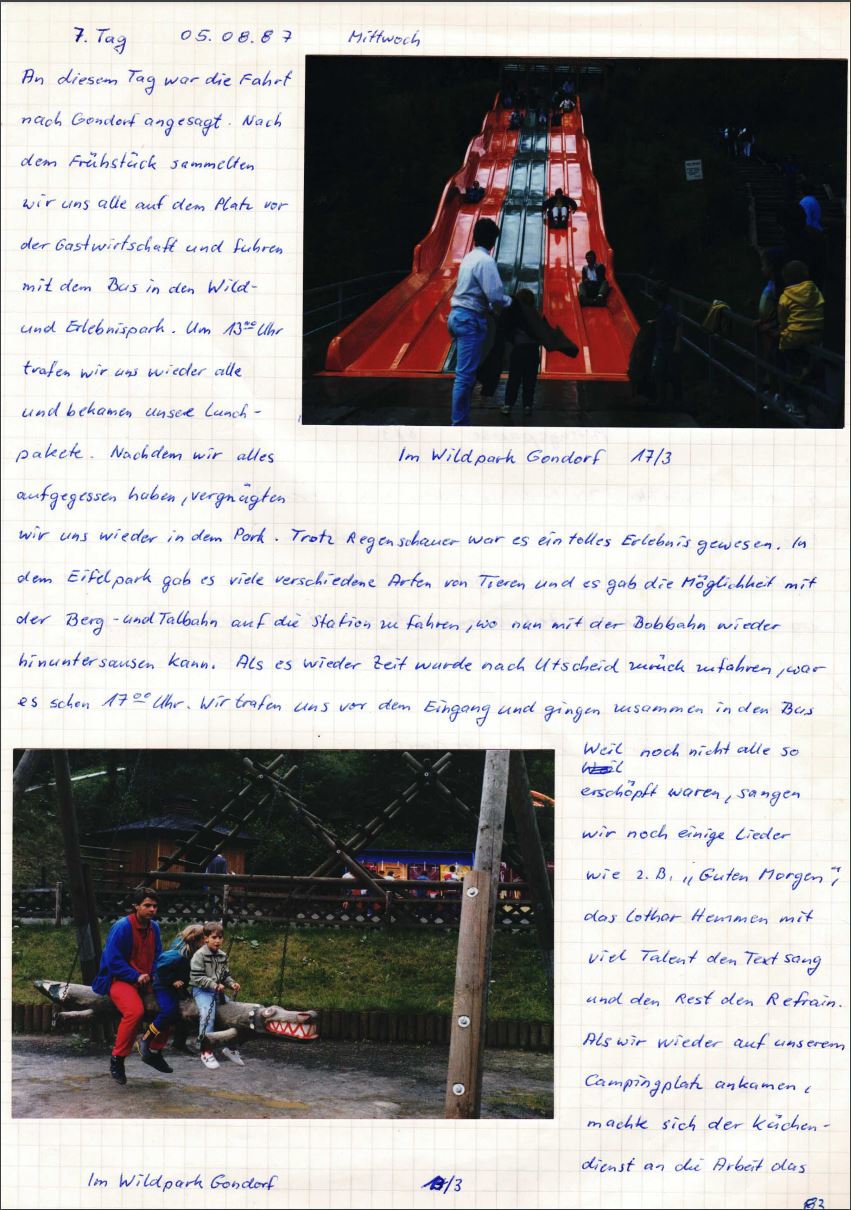 7. Tag 05.08.87 Mittwoch
An diesem Tag war die Fahrt
nach Gondorf angesagt. Nach
dem Frühstück sammelten
wir uns alle auf dem Platz vor
der Gastwirtschaft und fuhren
mit dem Bus in den Wild-
und Erlebnispark. Um 13⁰⁰ Uhr
trafen wir uns wieder alle
und bekamen unsere Lunch-
pakete. Nachdem wir alles
aufgegessen haben, vergnügten
Im Wildpark Gondorf 17/3
wir uns wieder in dem Park. Trotz Regenschauer war es ein tolles Erlebnis gewesen. In
dem Eifelpark gab es viele verschiedene Arten von Tieren und es gab die Möglichkeit mit
der Berg- und Talbahn auf die Station zu fahren, wo nun mit der Bobbahn wieder
hinuntersausen kann. Als es wieder Zeit wurde nach Utscheid zurück zufahren, war
es schon 17⁰⁰ Uhr. Wir trafen uns vor dem Eingang und gingen zusammen in den Bus
Weil noch nicht alle so
erschöpft waren, sangen
wir noch einige Lieder
wie z.B. „Guten Morgen“,
das Lothar Hemmen mit
viel Talent den Text sang
und den Rest den Refrain.
Als wir wieder auf unserem
Campingplatz ankamen,
machte sich der Küchen-
dienst an die Arbeit das
Im Wildpark Gondorf /3